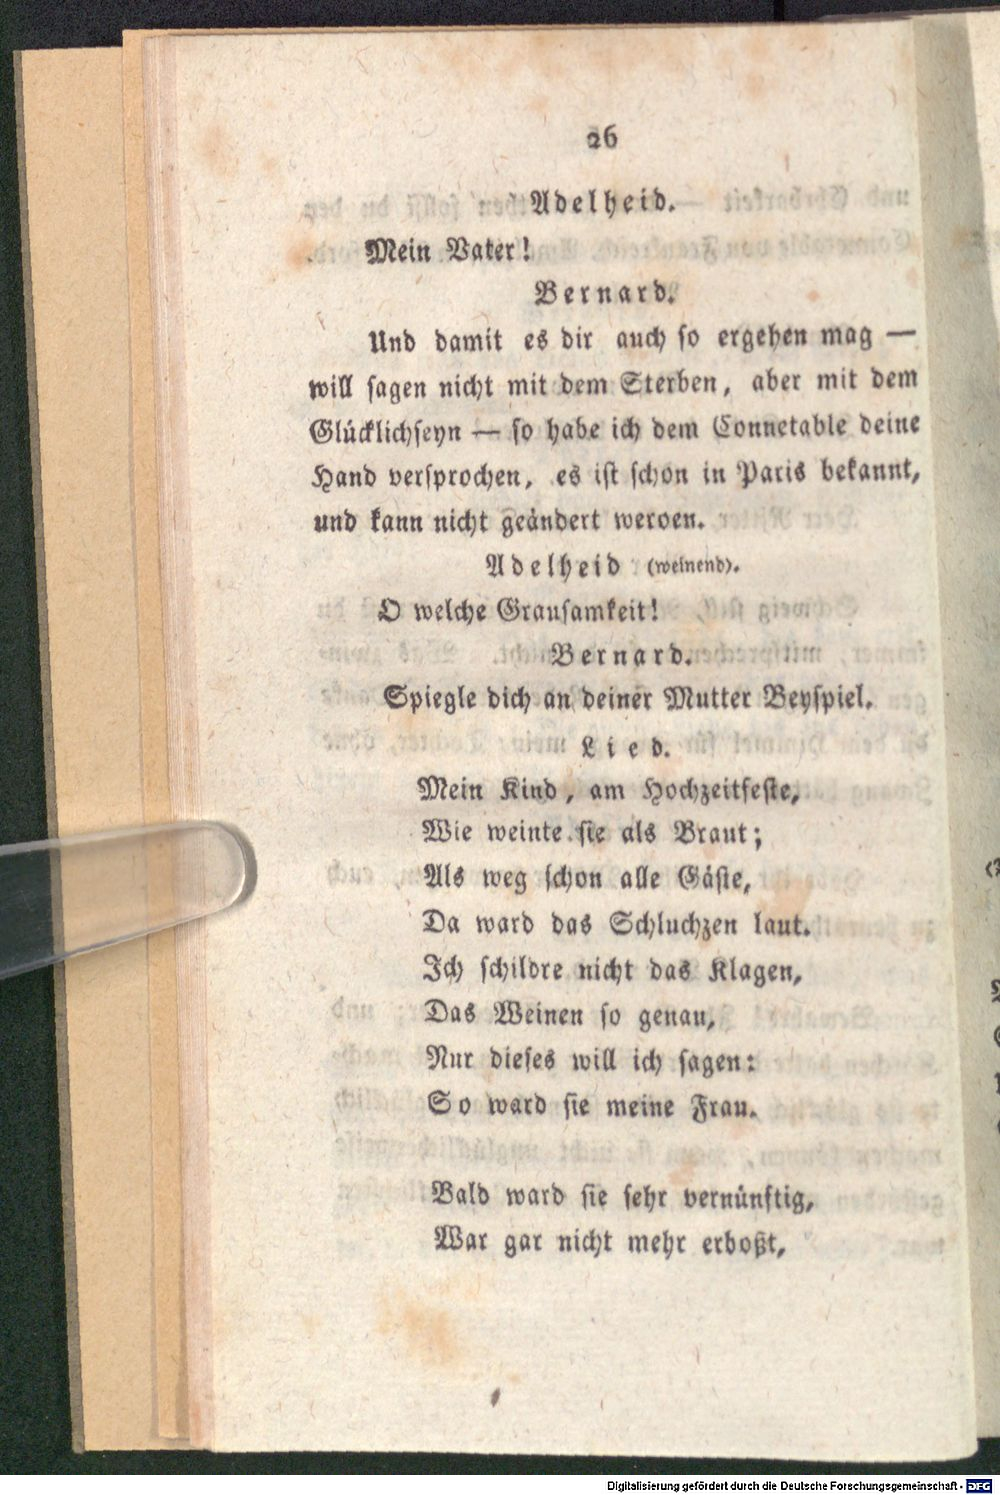 26
Adelheid.
Mein Vater!
Bernard.
Und damit es dir auch so ergehen mag —
will sagen nicht mit dem Sterben, aber mit dem
Glücklichseyn — so habe ich dem Connetable deine
Hand versprochen, es ist schon in Paris bekannt,
und kann nicht geändert weroen.
Adelheid (weinend).
O welche Grausamkeit!
Bernard.
Spiegle dich an deiner Mutter Beyspiel.
Lied.
Mein Kind, am Hochzeitfeste,
Wie weinte sie als Braut;
Als weg schon alle Gäste,
Da ward das Schluchzen laut.
Ich schildre nicht das Klagen,
Das Weinen so genau,
Nur dieses will ich sagen:
So ward sie meine Frau.
Bald ward sie sehr vernünftig,
War gar nicht mehr erboßt,
Digitalisierung gefördert durch die Deutsche Forschungsgemeinschaft - DFG